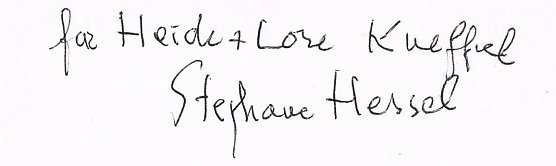 für Heide + Lore Kneffel
Stephane Hessel